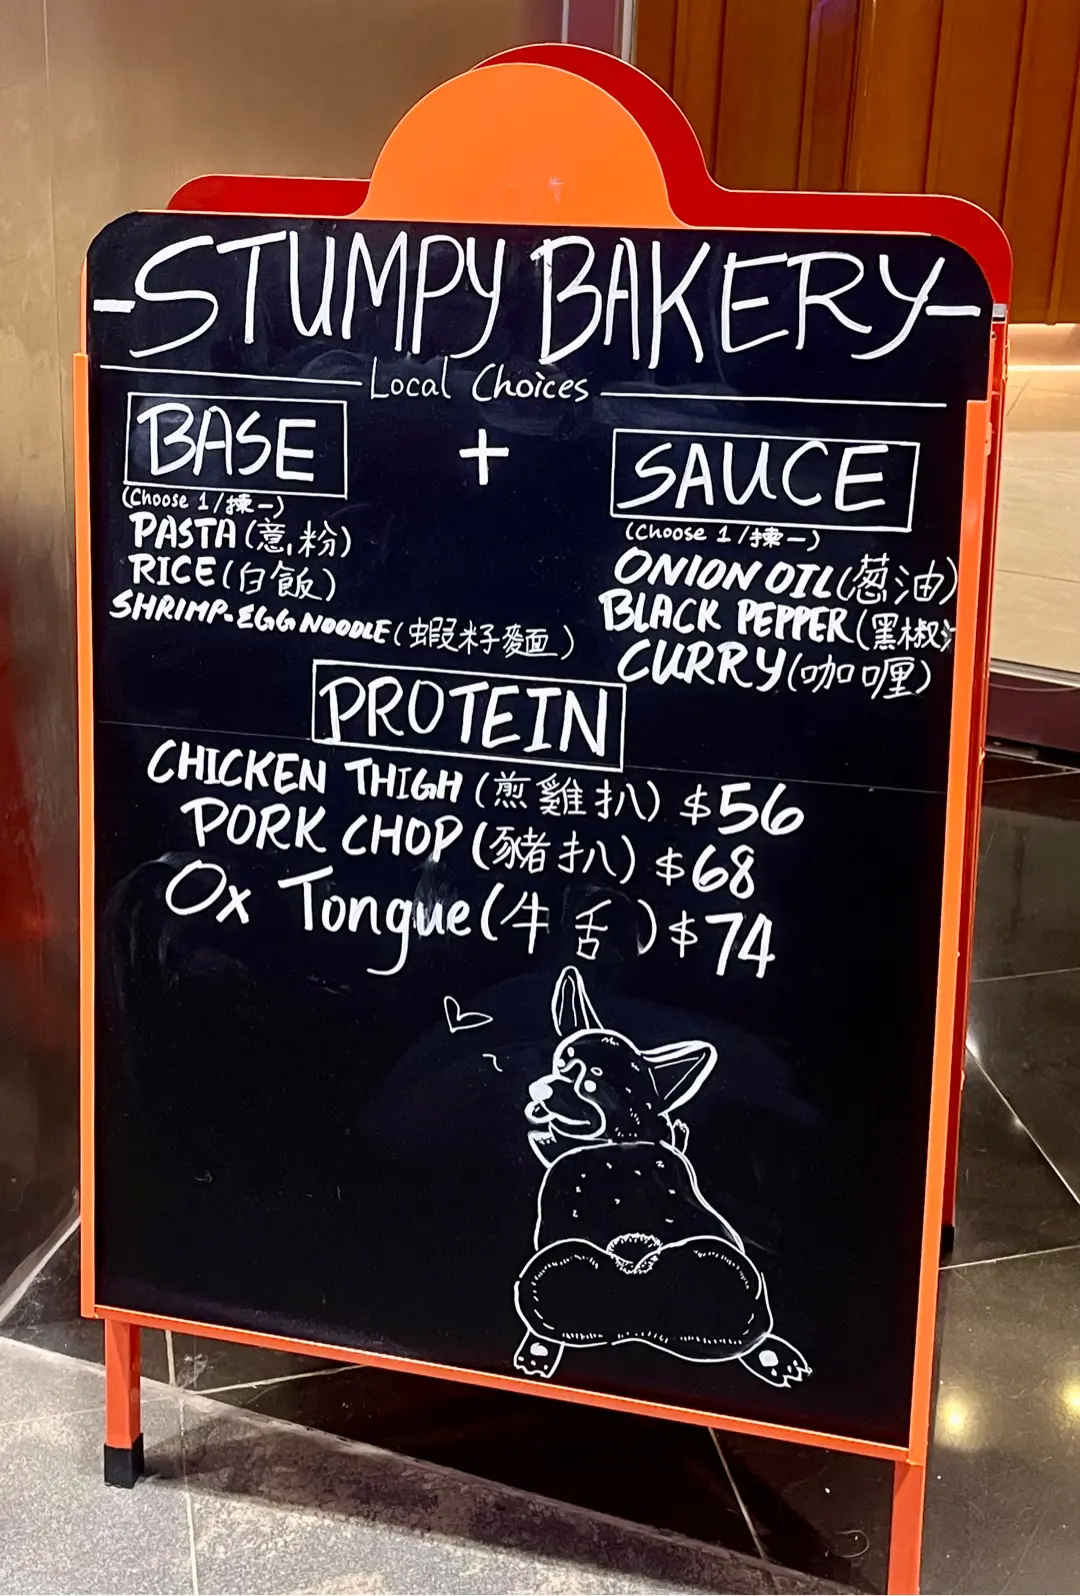 STUMPY BAKERY
Local Choices
BASE
(Choose 1/揀一)
PASTA (意粉)
RICE (白飯)
SHRIMP-EGG NOODLE (蝦籽麵)
+
SAUCE
(Choose 1/揀一)
ONION OIL (葱油)
BLACK PEPPER (黑椒
CURRY (咖喱)
PROTEIN
CHICKEN THIGH (煎雞扒) $56
PORK CHOP (豬扒) $68
Ox Tongue (牛舌) $74